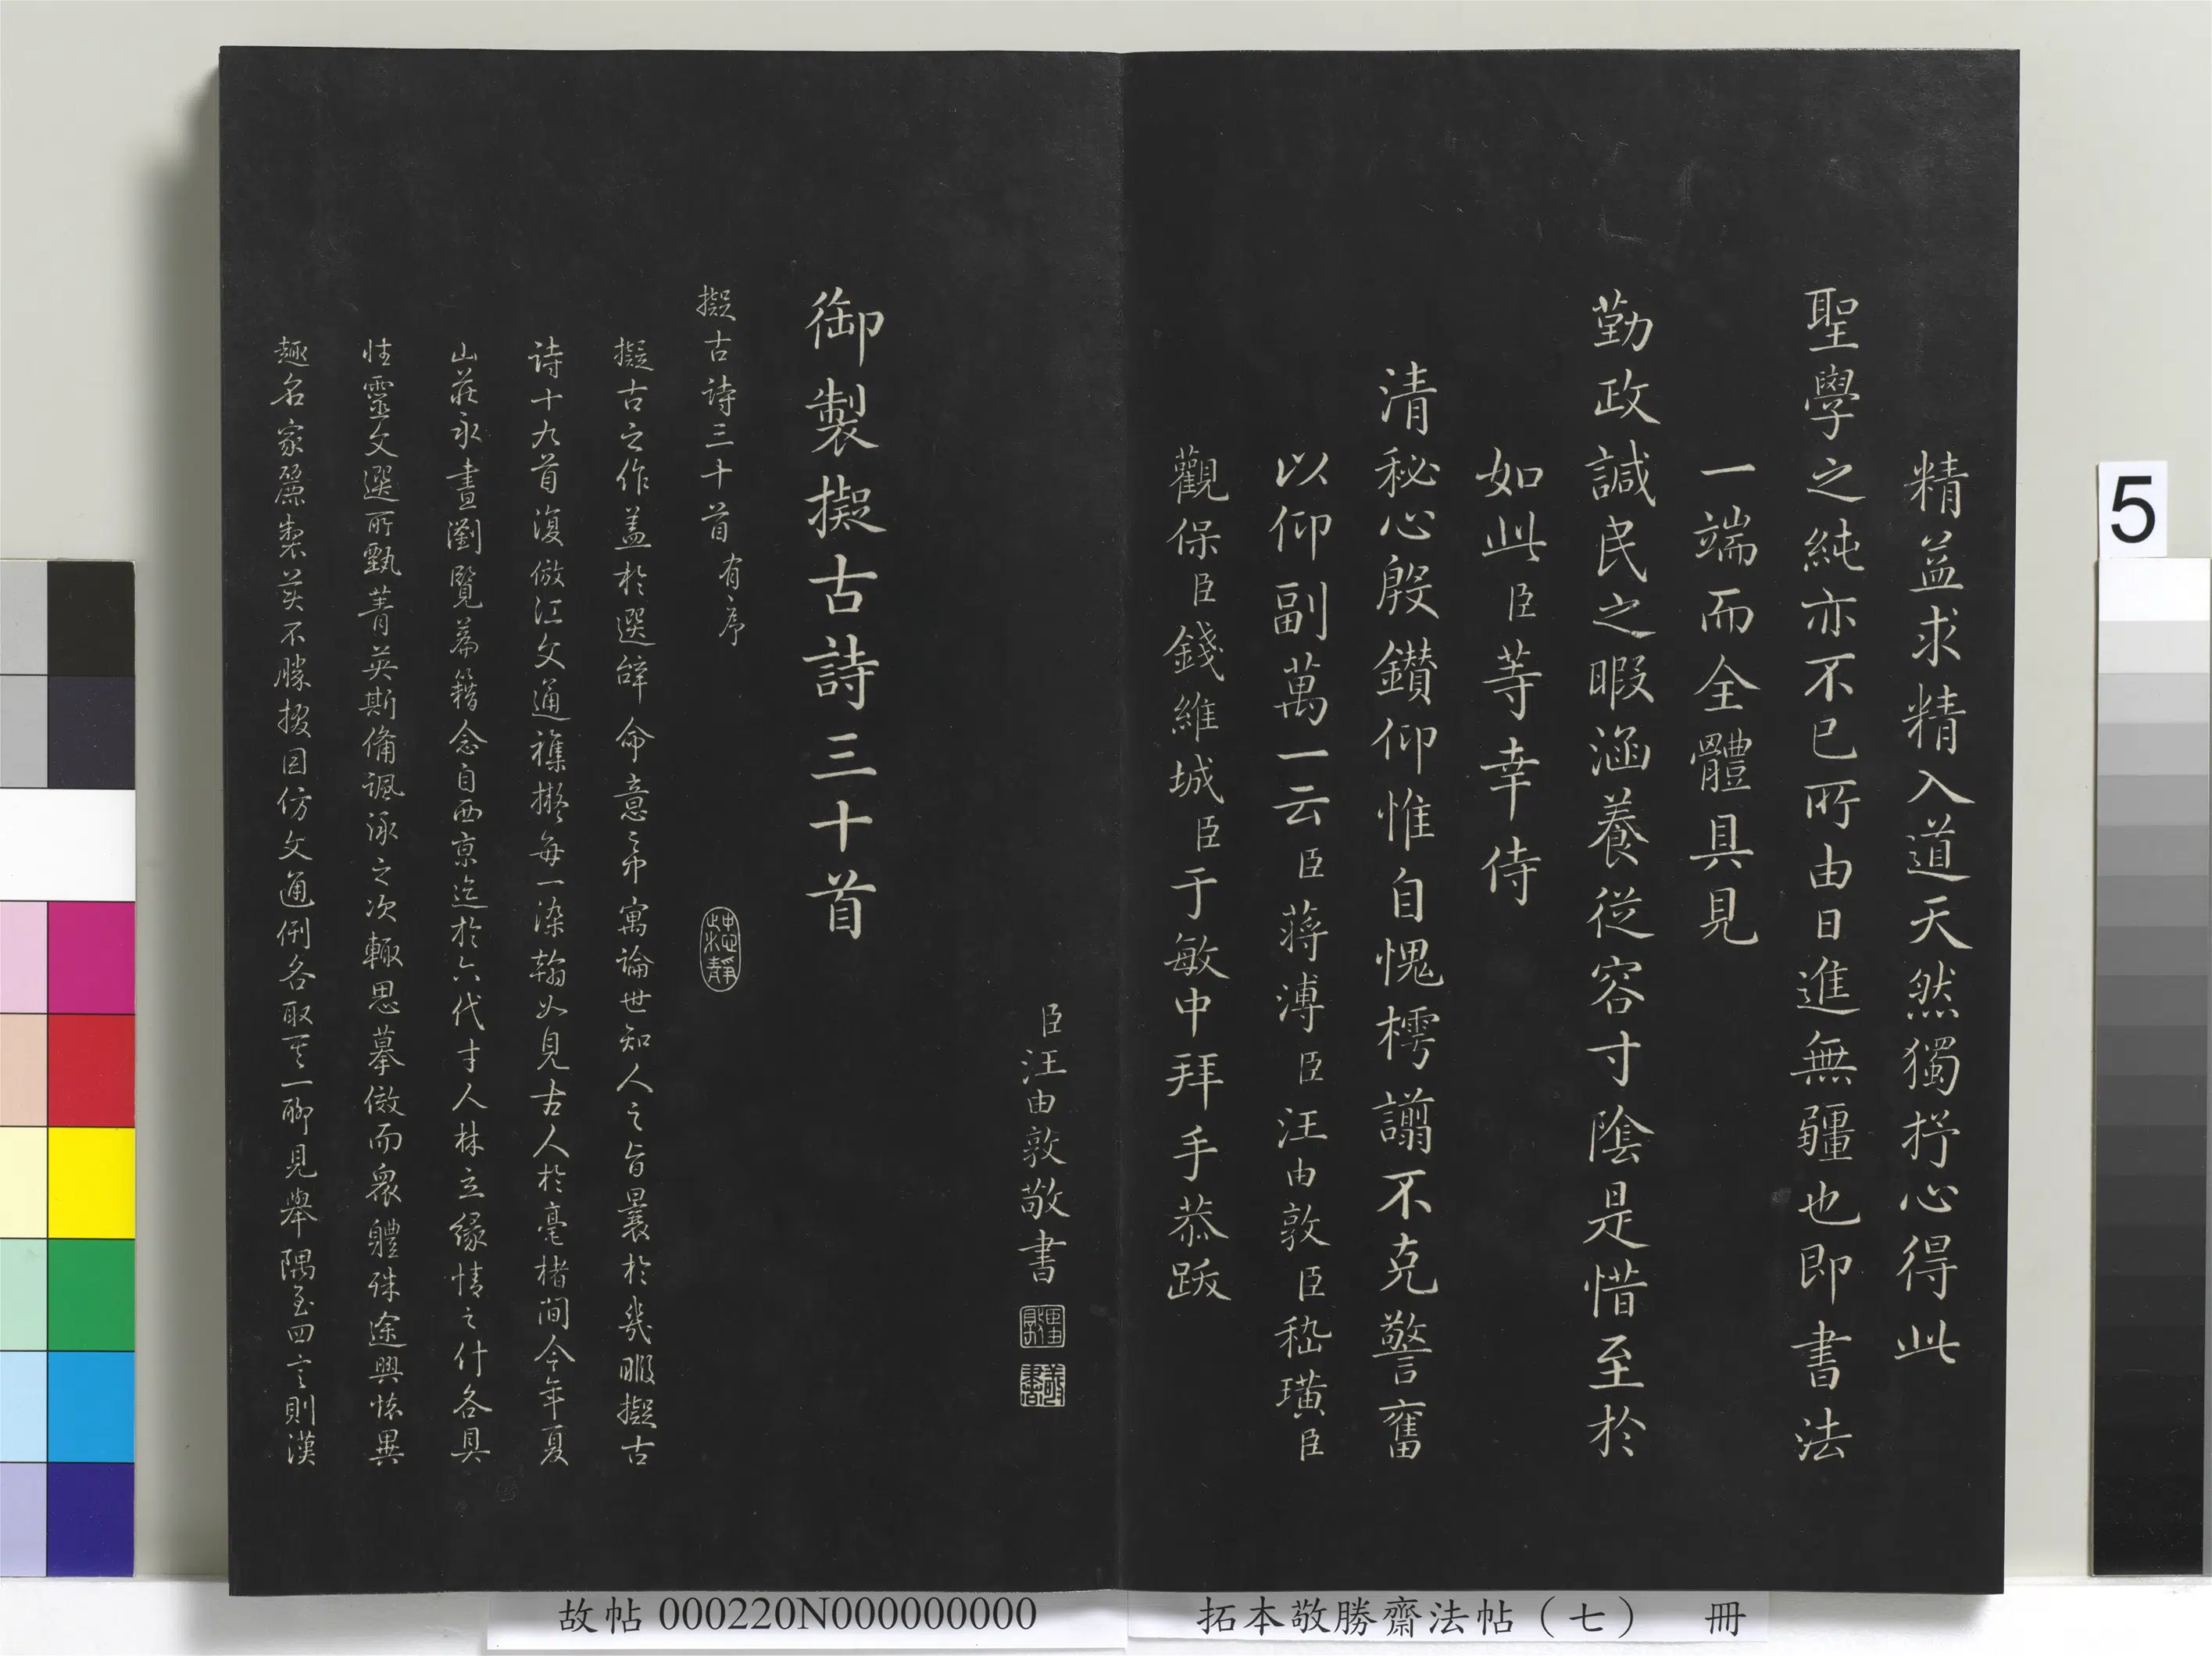 精益求精入道天然獨抒心得此
聖學之純亦不已所由日進無疆也即書法
一端而全體具見
勤政諴民之暇涵養從容寸陰是惜至於
如此臣等幸侍
清秘心殷鑽仰惟自愧樗譾不克警奮
以仰副萬一云臣蔣溥臣汪由敦臣嵇璜臣
觀保臣錢維城臣于敏中拜手恭跋
臣汪由敦敬書
御製擬古詩三十首
擬古詩三十首有序
擬古之作盖於選辭命意之中寓論世知人之旨曩於幾暇擬古
詩十九首復倣江文通雜擬每一染翰如見古人於毫楮間今年夏
山莊永晝瀏覽篇籍念自西京迄於六代才人林立緣情之什各具
性靈文選所甄菁英斯備諷詠之次輒思摹倣而衆體殊途興懷異
趣名家麗製美不勝掇因仿文通例各取其一聊見舉隅至四言則漢
5
故帖 000220N000000000
拓本敬勝齋法帖（七） 冊